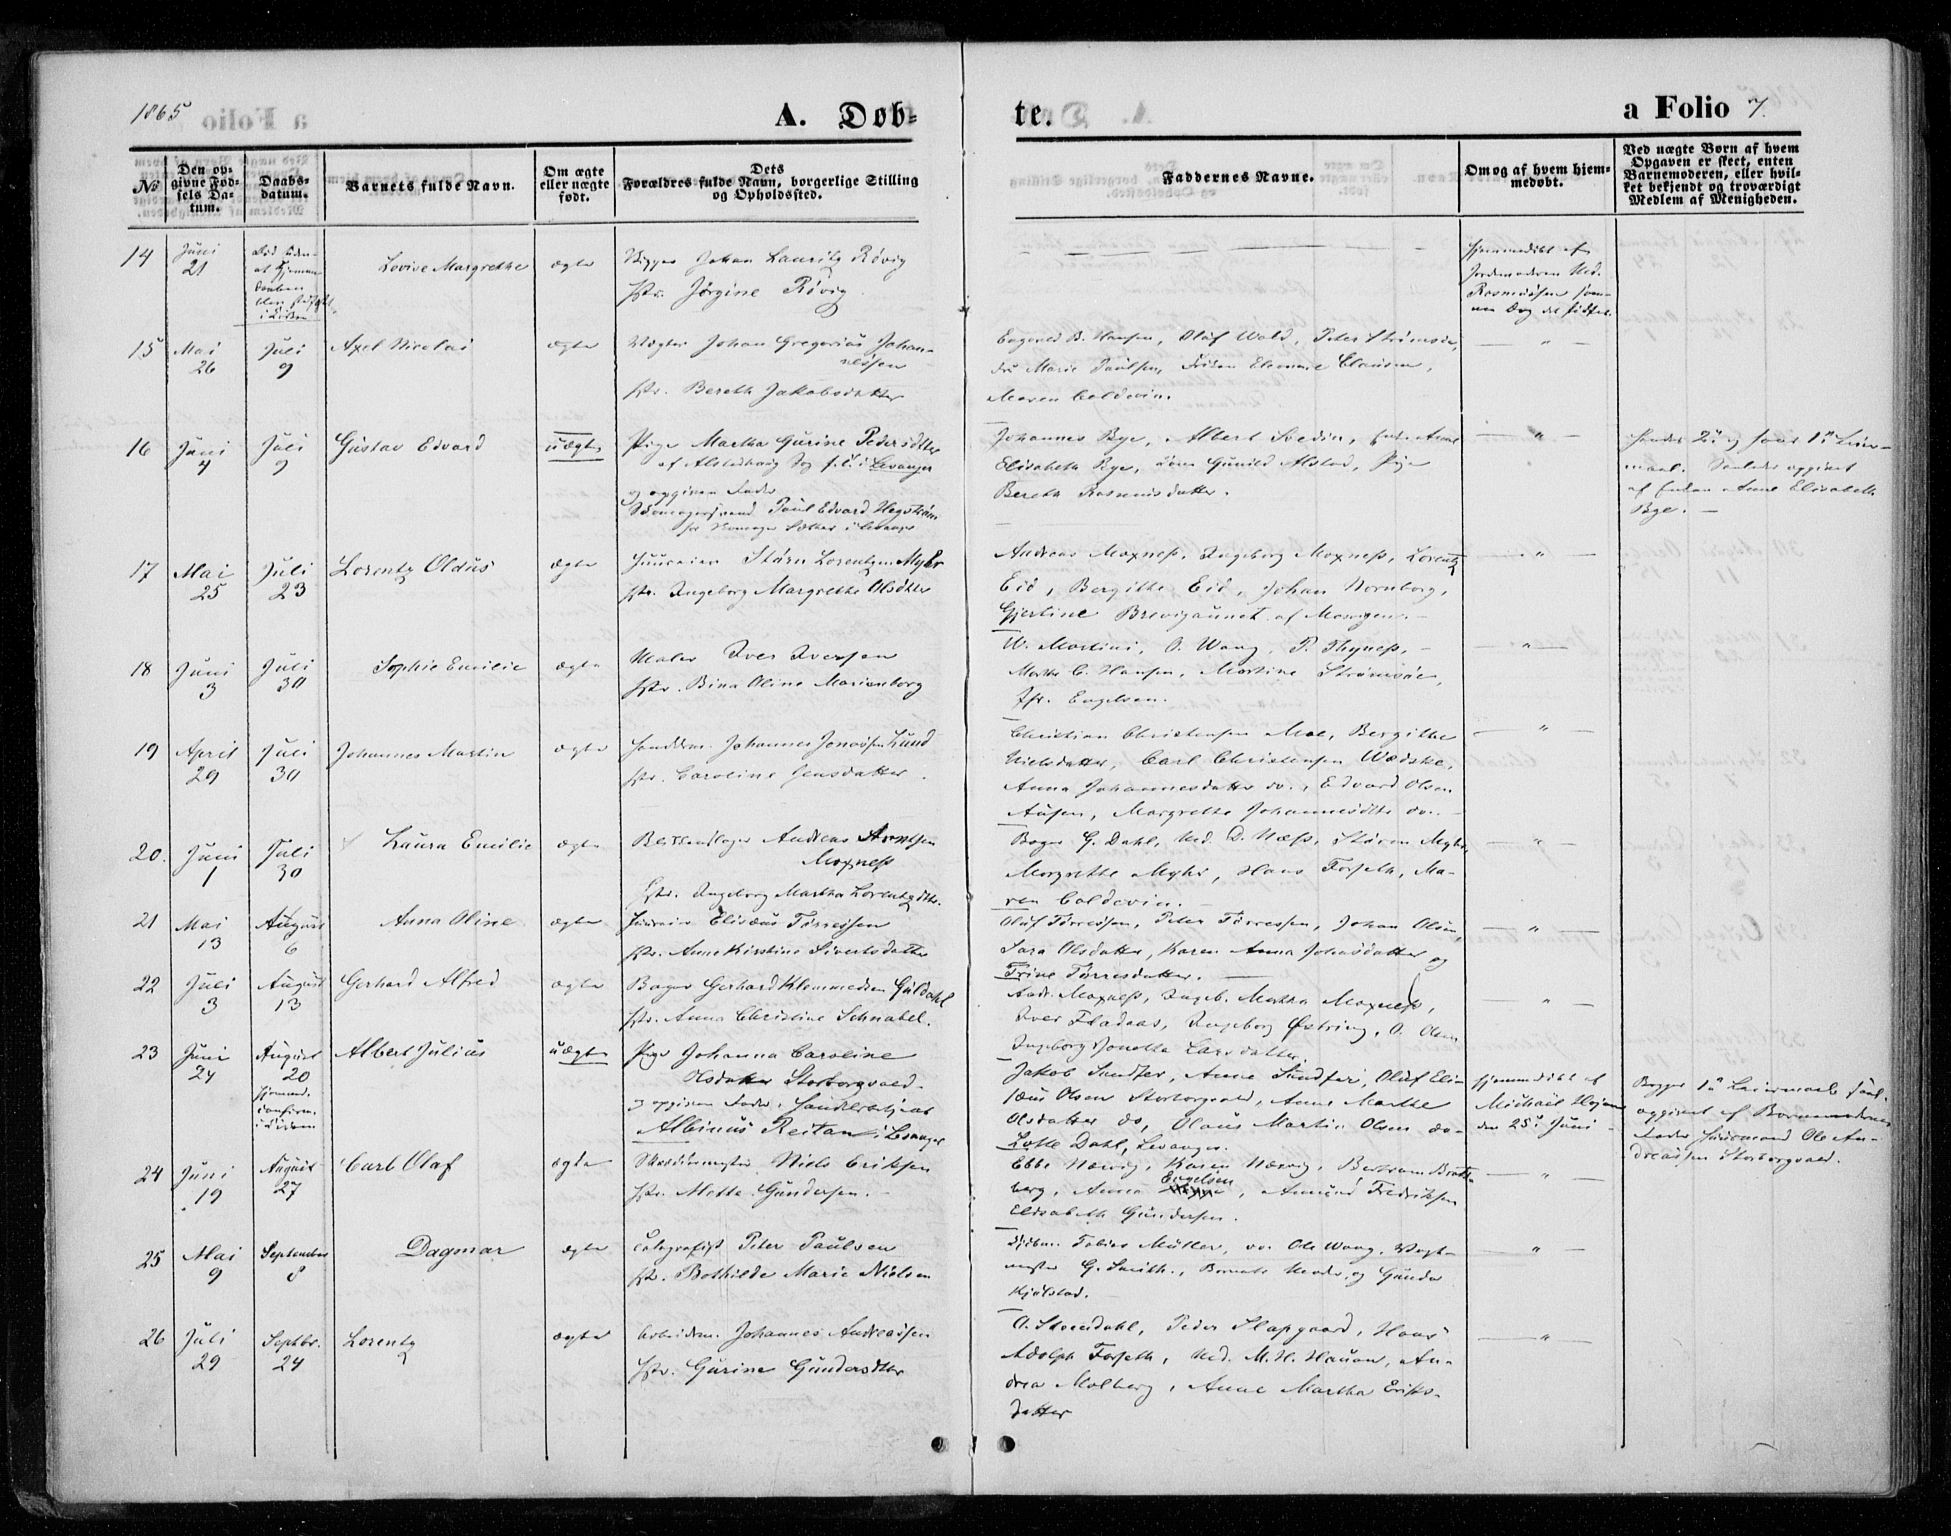 1865
A. Døb-
te.
a Folio 7.
No
Den opgivne Fødsels Datum.
Daabsdatum.
Barnets fulde Navn.
Om ægte eller uægte født.
Dets Forældres fulde Navn, borgerlige Stilling og Opholdssted.
Faddernes Navne.
Om og af hvem hjemmedøbt.
Ved uægte Børn af hvem Opgaven er skeet, enten Barnemoderen, eller hvilket bekjendt og troværdigt Medlem af Menigheden.
14
Juni 21
Lovise Margrethe
ægte
Johan Lauritz Røvig
Hstr. Jørgine Røvig
hjemmedøbt af
Jordemoderen Md.
15
Mai 26
Juli 9
Axel Nicolai
ægte
Vægter Johan Gregorius Johan-
nessen
Hstr. Bereth Jakobsdatter
B. Hansen, Oluf Wold, Peter Strømsøe,
Marie Paulsen, Frøken Eleonore Clausen,
Maren Coldevin.
16
Juni 4
Juli 9
Gustav Edvard
uægte
Pige Martha Gurine Pedersdtter
af Alstadhoug Sog f. t. i Levanger
og opgiven Fader
Skomagersvend Paul Edvard Hegstrøm
i Levanger
Johannes Bye, Albert Svedin, Anne
Elisabeth Bye, Gunild Alstad, Pige
Bereth Rasmusdatter.
af Anne Elisabeth
Bye.
17
Mai 25
Juli 23
Lorentz Oldus
ægte
Støren Lorentzen Myhr
Hstr. Ingeborg Margrethe Olsdtter
Andreas Moxness, Ingeborg Moxness, Lorentz
Eid, Bergitte Eid, Johan Nornborg,
Gjertine Brevigaunet af Mosvigen.
18
Juni 3
Juli 30
Sophie Emilie
ægte
Maler Iver Iversen
Hstr. Bina Oline Marienborg
W. Martini, O. Wang, P. Thyness,
Marthe C. Hansen, Martine Strømsøe,
Jfr. Engelsen.
19
April 29
Juli 30
Johannes Martin
ægte
Johannes Jonassen Lund
Hstr. Caroline Jensdatter.
Christian Christensen Moe, Bergitte
Nielsdatter, Carl Christensen Wædske,
Anna Johannesdatter do., Edvard Olsen
Ausen, Margrethe Johannesdtter do.
20.
Juni 1
Juli 30
Laura Emilie
ægte
Andreas Arntsen
Moxness
Hstr. Ingeborg Martha Lorentzdtr.
Bager G. Dahl, Md. D. Næss, Støren Myhr,
Margrethe Myhr, Hans Forseth, Ma-
ren Coldevin.
21
Mai 13
August 6
Anna Oline
ægte
Elisæus Tørressen
Hstr. Anne Kirstine Sivertsdatter
Oluf Tørressen, Peter Tørressen, Johan Olsen,
Sara Olsdatter, Karen Anna Johansdatter og
Trine Tørresdatter.
22
Juli 3
August 13
Gerhard Alfred
ægte
Bager Gerhard Klemmedsen Guldahl
Hstr. Anna Christine Schnabel.
Andr. Moxness, Ingeb. Martha Moxness,
Iver Fladaas, Ingeborg Østring, O. Olsen
Ingeborg Jonetta Larsdatter.
23
Juni 24
August 20
Albert Julius
uægte
Pige Johanna Caroline
Olsdatter Storborgvald.
og opgiven Fader, Handelsbetjent
Albinus Reitan i Levanger
Jakob Sundfær, Anne Sundfær, Oluf Eli-
sæus Olsen Storborgvald, Anne Marthe
Olsdatter do, Olaus Martin Olsen do.
Lotte Dahl, Levanger.
hjemmedøbt af
Michael Hojem
den 25de Juni
opgivet af Barnemoderens
Fader Huusmand Ole An-
dreassen Storborgvald.
24
Juni 19
August 27
Carl Olaf
ægte
Skræddermester Niels Eriksen
Hstr. Mette Gundersen.
Ebbe Nærvig, Karen Nærvig, Bertram Bratt-
berg, Anna Engelsen, Amund Fredriksen
Elisabeth Gundersen.
25
Mai 9
September 8
Dagmar
ægte
Fotografist Peter Paulsen
Hstr. Bothilde Marie Nielsen
Kjøbm. Tobias Müller, do. Ole Wang, Vagt-
mester G. Smith, Barnets Moder, og Gunda
Kjølstad.
26
Juli 29
Septbr. 24
Lorentz
ægte
Arbeidsm. Johannes Andreassen
Hstr. Gurine Gundersdtter
O. Steendahl, Peder Slapgaard, Hans
Adolph Forseth, Md. M. H. Hauan, An-
drea Molberg, Anne Martha Eriks-
datter